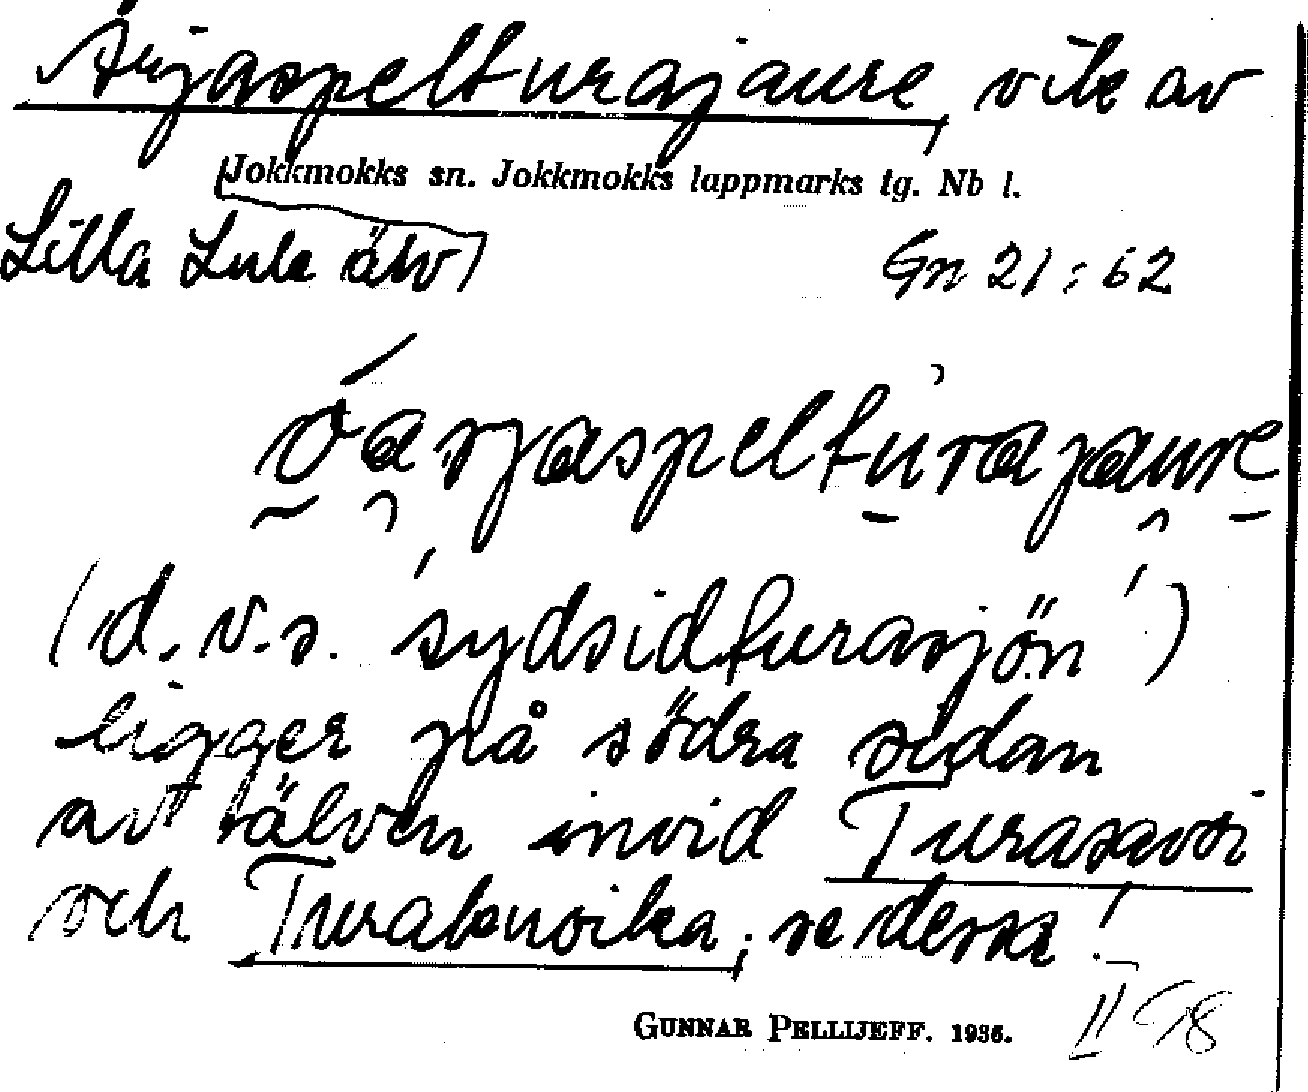 Årjaspelturajaure, vik av
Jokkmokks sn. Jokkmokks lappmarks tg. Nb l.
Lilla Lule älv
Gn 21:62
oarjaspelturajaure
(d.v.s. 'sydsidturasjön')
ligger på södra sidan
av älven invid Turasavon
och Turakuoika, se dessa!
GUNNAR PELLIJEFF. 1936.
II 98